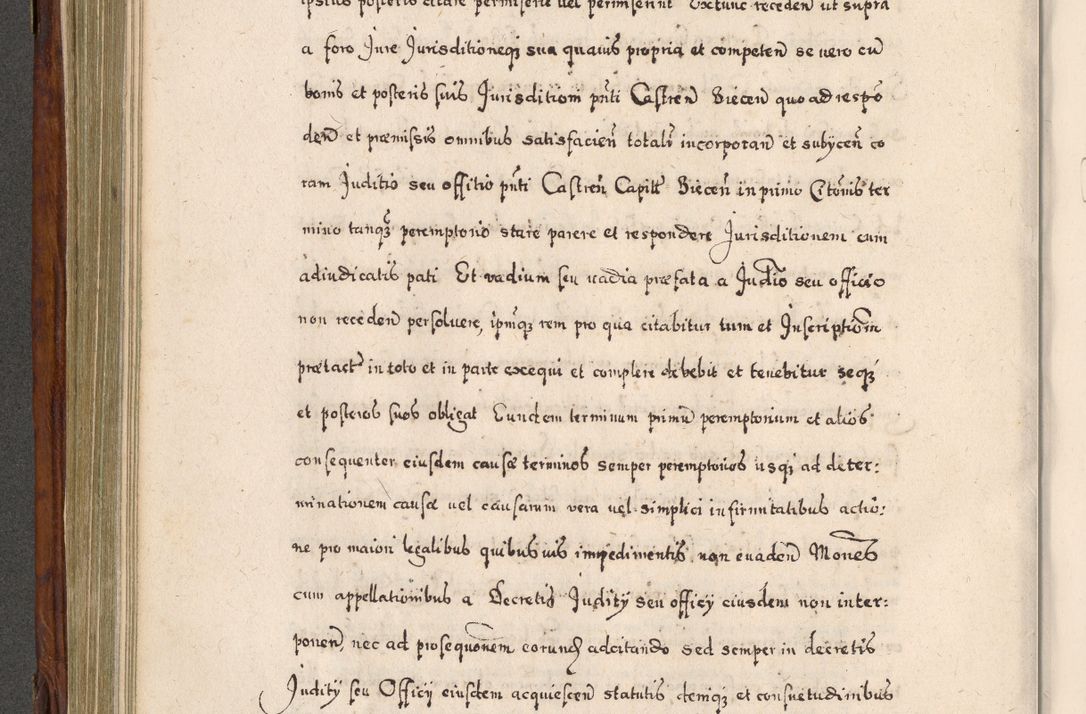 ipsius posteris citare permiserit vel permiserint Extunc receden ut supra
a foro Jure Jurisditioneqз sua quavis propria et competen se vero cu
bonis et posteris suis Jurisditioni pnti Castren Biecen quo ad respo
den et præmissis omnibus satisfacien totalr incorporan et subijcen co
ram Juditio seu offitio pnti Castren Capitl Biecen in primo Citonis ter
mino tanqз peremptorio stare parere et respondere Jurisditionem cum
adiudicatis pati Et vadium seu vadia præfata a Judio seu officio
non receden persolvere, ipmqз rem pro qua citabitur tum et Inscriptiom
prætact in toto et in parte exequi et complere debebit et tenebitur seqз
et posteros suos obligat Eundem terminum primu peremptorium et alios
consequenter eiusdem causæ terminos semper peremptorios usqз ad deter:
minationem causæ vel causarum vera vel simplici infirmitatibus actio:
ne pro maiori legalibus quibusvis impedimentis non evaden Mones
cum appellationibus a Decretis Juditij seu officij eiusdem non inter:
ponen, nec ad prosequonem eorund adcitando sed semper in decretis
Juditij seu Officij eiusdem acquiescen statutis demqз et consuetudinibus